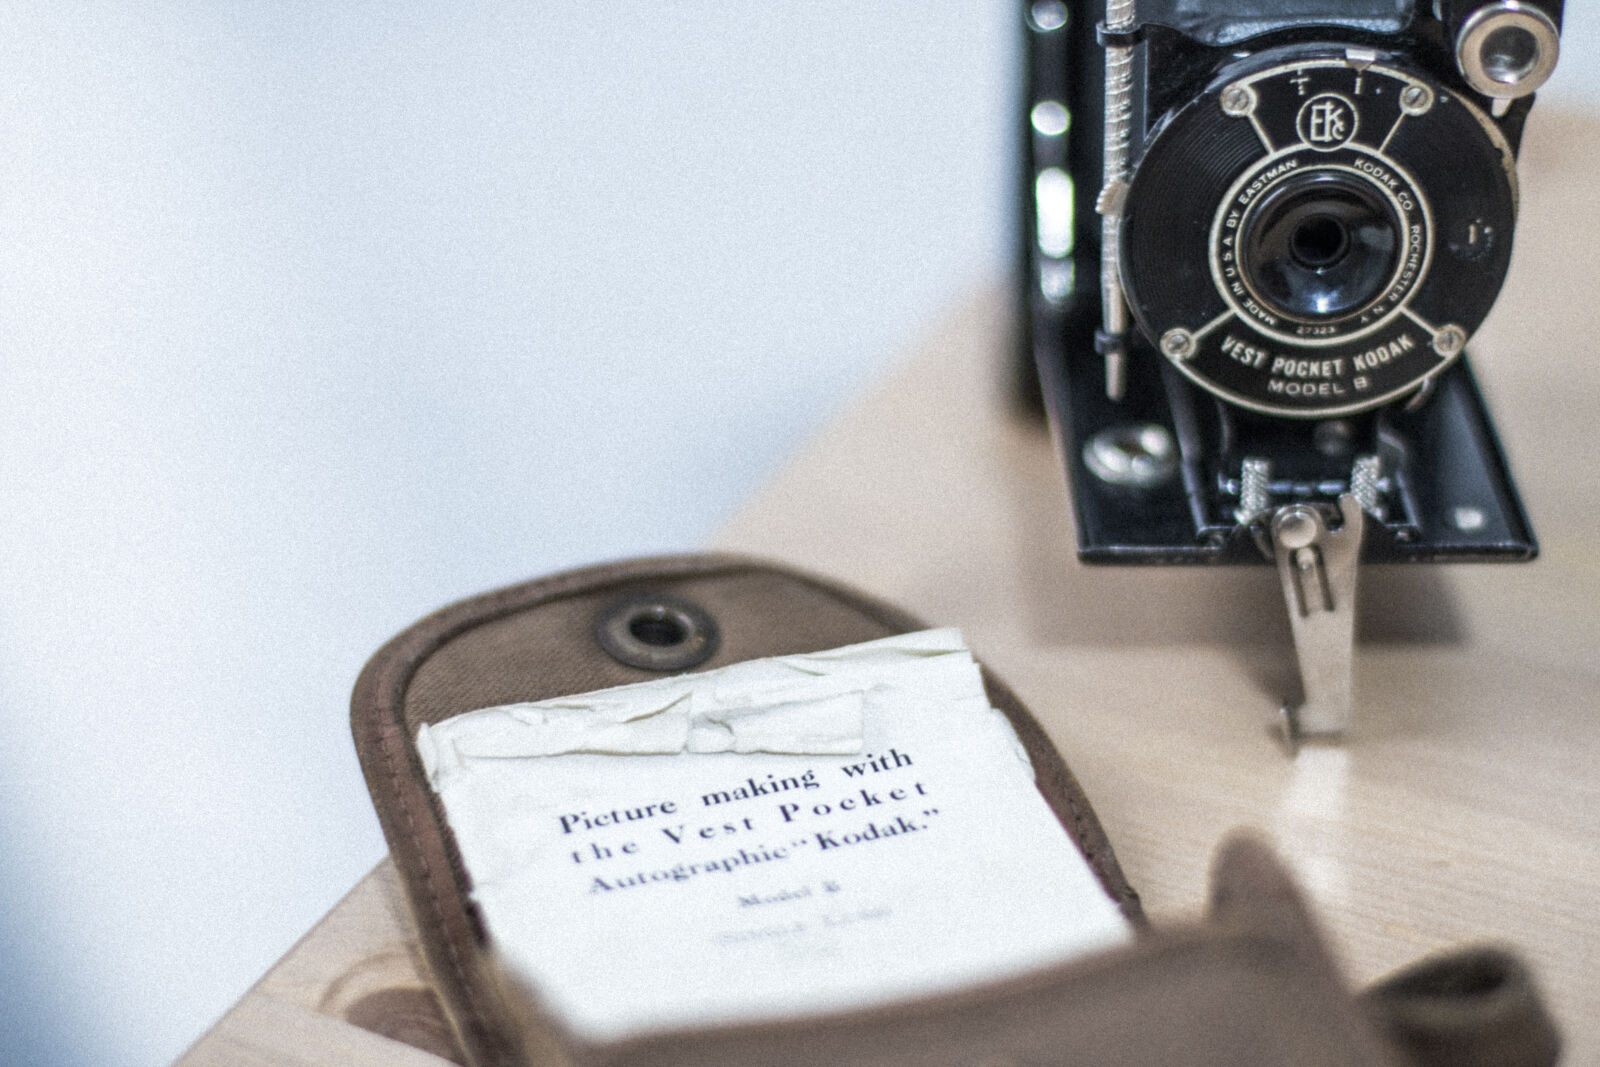 T I
EKC
MADE IN U.S.A. BY EASTMAN KODAK CO. ROCHESTER N.Y.
27323
VEST POCKET KODAK
MODEL B
Picture making with
the Vest Pocket
Autographic “Kodak.”
Model B